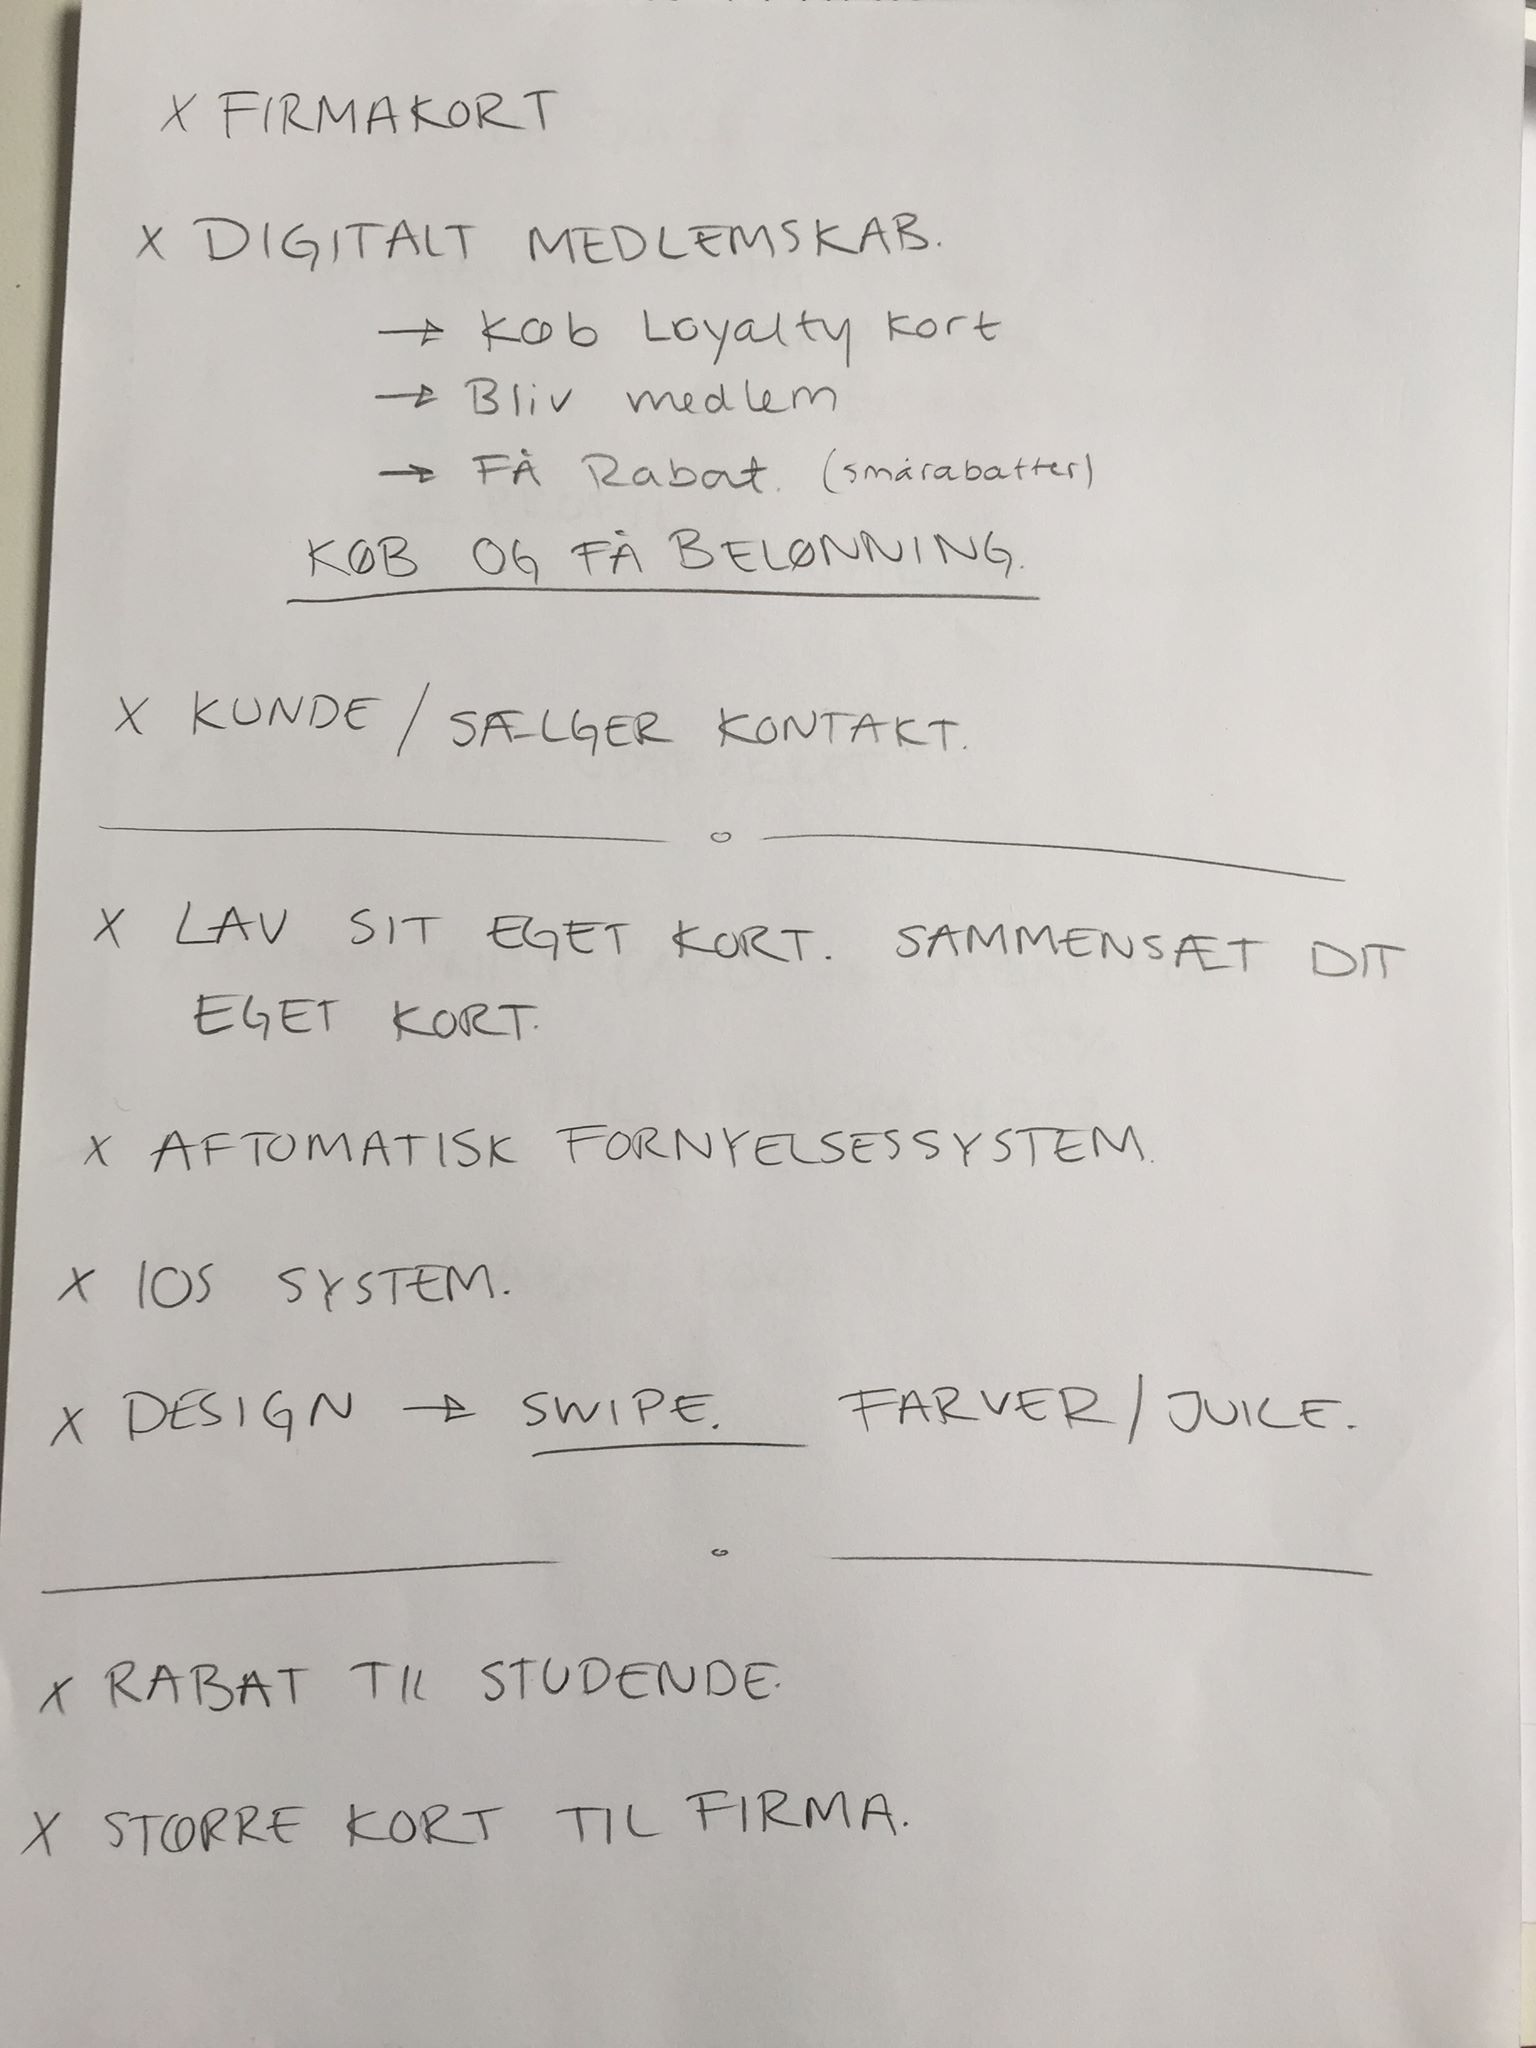 X FIRMAKORT
X DIGITALT MEDLEMSKAB.
→ KØb Loyalty Kort
→ Bliv medlem
→ FÅ Rabat. (smårabatter)
KØB OG FÅ BELØNNING.
X KUNDE / SÆLGER KONTAKT.
X LAV SIT EGET KORT. SAMMENSÆT DIT
EGET KORT.
X AFTOMATISK FORNYELSESSYSTEM.
X IOS SYSTEM.
X DESIGN → SWIPE. FARVER / JUICE.
X RABAT TIL STUDENDE.
X STØRRE KORT TIL FIRMA.